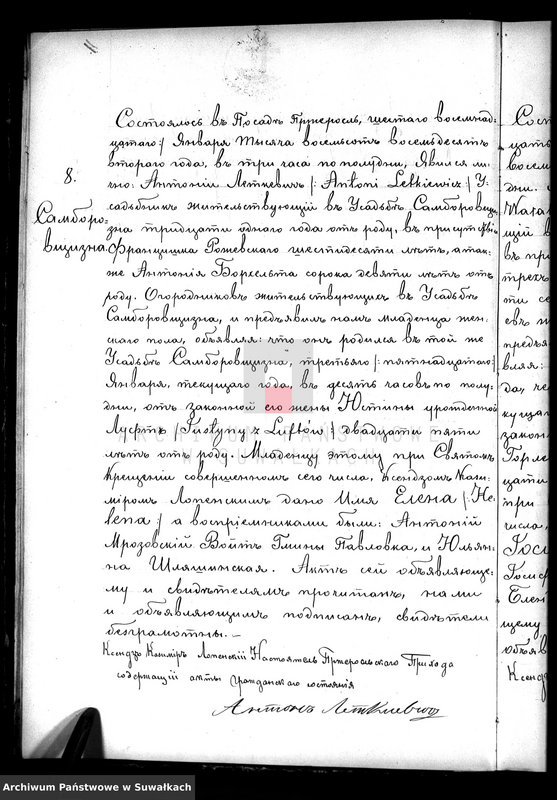 8.
Самборо-
вщизна.
Состоялось въ Посадѣ Пржеросль, шестаго восемнад-
цатаго:/ Января тысяча восемьсотъ восемьдесятъ
втораго года, въ три часа по полудни, явился ли-
чно: Антоній Леткевичъ /: Antoni Letkiewicz:/ У-
садьбникъ жительствующій въ Усадьбѣ Самборовщи-
зна тридцати одного года отъ роду, въ присутствіи
Францишка Рожевскаго шестидесяти лѣтъ, а так-
же Антонія Боркельта сорока девяти лѣтъ отъ
роду. Огородниковъ жительствующихъ въ Усадьбѣ
Самборовщизна, и предъявилъ намъ младенца жен-
скаго пола, объявляя: что онъ родился въ той же
Усадьбѣ Самборовщизна, третьяго /: пятнадцатаго:/
Января, текущаго года, въ десять часовъ по полу-
дни, отъ законной его жены Юстины урожденной
Луфтъ /: Justyny z Luftów:/ двадцати пяти
лѣтъ отъ роду. Младенцу этому при Святомъ
Крещеніи совершенномъ сего числа, Ксендзомъ Кази-
міромъ Лопенскимъ дано Имя Елена /: He-
lena:/ а воспріемниками были: Антоній
Мрозовскій Войтъ Гмины Павловка, и Юльян-
на Шляшинская. Актъ сей объявляюще-
му и свидѣтелямъ прочитанъ, нами
и объявляющимъ подписанъ, свидѣтели
безграмотны. —
Ксендзъ Казиміръ Лопенскій Настоятель Пржеросльскаго Прихода
содержащій акты гражданскаго состоянія
Антонъ Леткевичъ
Сост
цать
восем
дни.
щій в
въ пр
трехъ
ти со
евъ ж
предъя
вляя:
да, че
кущаго
законн
Горле
цати
при
числа,
Госи
Елен
щему
объяв
Ксенд
ARCHIWUM PAŃSTWOWE
W SUWAŁKACH
Archiwum Państwowe w Suwałkach